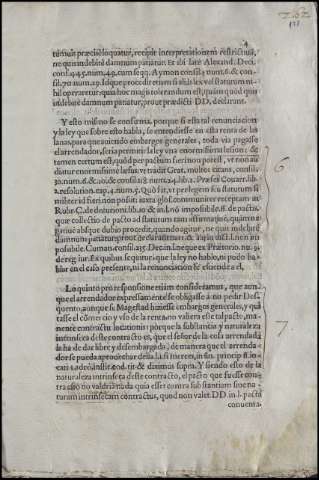 4
tum ius præcisè loquatur, recipit interpretationem restrictiuã,
ne quis indebitè damnum patiatur. Et ibi latè Alexand. Deci.
conf. 445. num. 49. cum seqq. Aymon consil. 3. num. 6. & con-
sil. 70 num. 29. Idque procedit etiam si alia lex vel statutum ni-
hil operaretur, quia hoc magis tolerandum est, quàm quod quis
indebitè damnum patiatur, prout prædicti DD. declarant.
Y esto mismo se confirma, porque si esta tal renunciacion
y la ley que sobre esto habla, se entendiesse en esta renta de las
lanas, para que auiendo embargos generales, toda via pagasse
el arrendador, seria permitir la ley vna enormissima lesion: &
tamen certum est, quòd per pactum fieri non potest, ut non au-
diatur enormissimè læsus, vt tradit Grat. multos citans, consil.
30. num. 6. &
resolution. cap. 4. num. 5. Quò fit, vt per legem seu statutum si
militer id fieri non possit: iuxta glos. communiter receptam in
Rubr. C. de
que collectio de pacto ad statutum tam affirmatiuè, quàm ne-
gatiuè absque dubio procedit, quando agitur, ne quis indebitè
damnum patiatur, prout declarant
possibile. Cuman. consil. 257. Deci. in l. ne que ex Prætorio. nu. 3.
de reg. iur. Ex quibus se quitur, que la ley no habló, ni pudo ha-
blar en el caso presente, ni la renunciacion se estiende a el.
Lo quinto pro responsione etiam consideramus, que aun-
que el arrendador expresamente se obligasse à no pedir Des-
quento, aunque su Magestad hiziesse embargos generales, y qui-
tasse el comercio y vso de la renta, no valiera este tal pacto, ma-
nente contractu locationis: porque la substantia y naturaleza
intrinseca deste contracto es, que el señor de la cosa arrendada
la ha de dar libre y desembargada, de manera que el arrenda-
dor se pueda aprouechar della: l. si merces, in fin. princip. ff. lo-
cati
naturaleza intrinseca deste contracto, el pacto que fuesse con-
tra esso no valdria nada quia esset contra substantiam siue na-
turam intrinsecam contractus, quod non valet. DD. in l. pacta
conuenta.
6
7